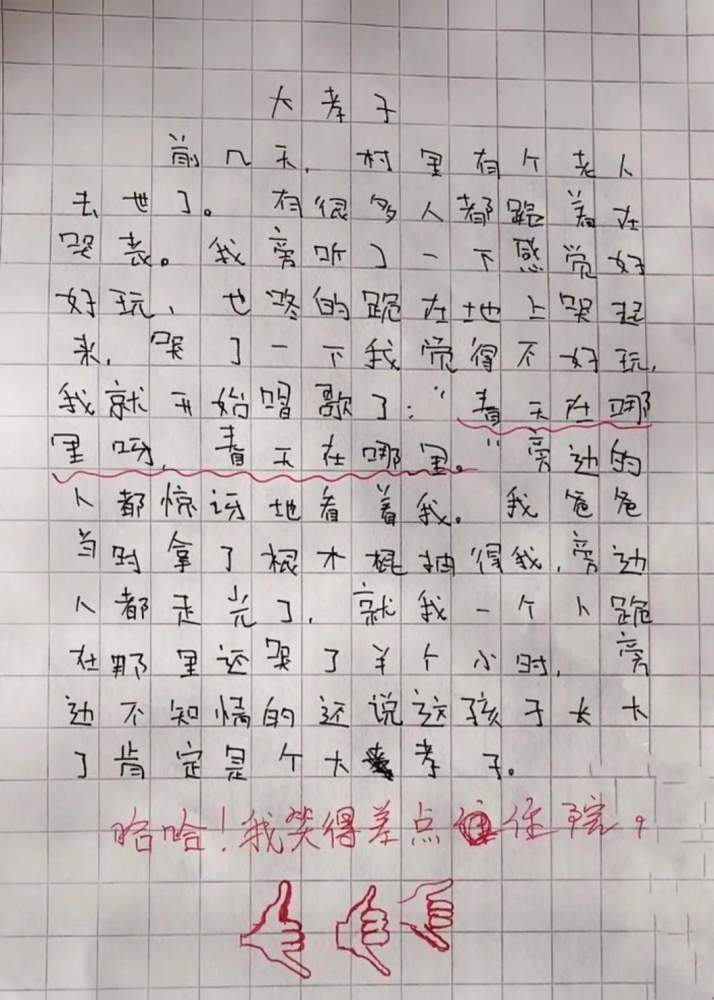 大孝子
前几天，村里有个老人
去世了。有很多人都跪着在
哭丧。我旁听了一下感觉好
好玩、也咚的跪在地上哭起
来，哭了一下我觉得不好玩，
我就开始唱歌了：“春天在哪
里呀，春天在哪里。”旁边的
人都惊讶地看着我。我爸爸
当时拿了根木棍抽得我，旁边
人都走光了，就我一个人跪
在那里还哭了半个小时，旁
边不知情的还说这孩子长大
了肯定是个大孝子。
哈哈！我笑得差点住院。